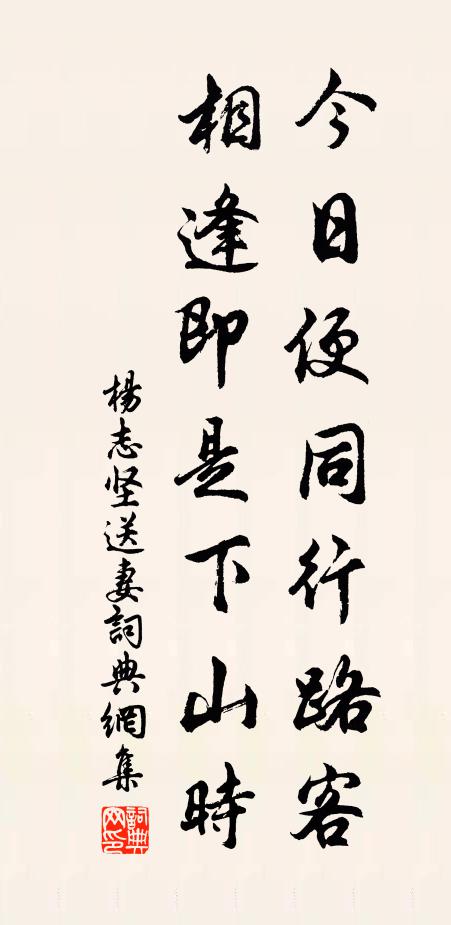 今日便同行路客
相逢即是下山時
楊志坚送妻詞典網集
詞典
网印